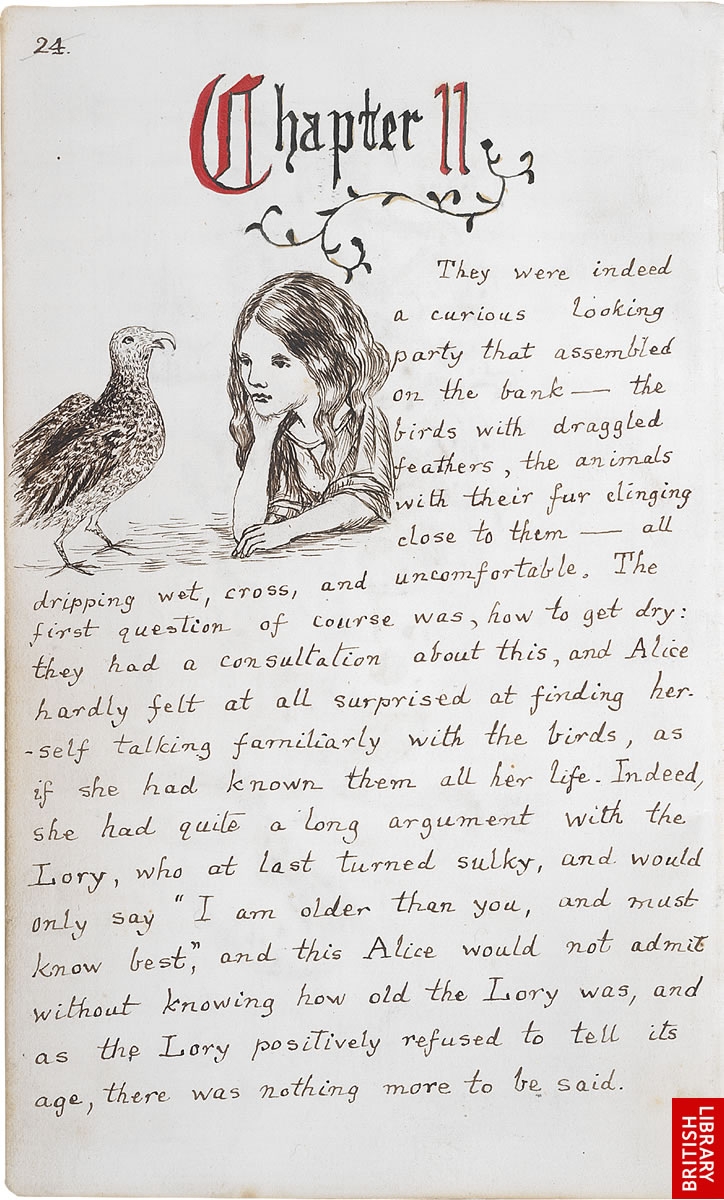 24.
Chapter II
They were indeed
a curious looking
party that assembled
on the bank — the
birds with draggled
feathers, the animals
with their fur clinging
close to them — all
dripping wet, cross, and uncomfortable. The
first question of course was, how to get dry:
they had a consultation about this, and Alice
hardly felt at all surprised at finding her-
-self talking familiarly with the birds, as
if she had known them all her life. Indeed,
she had quite a long argument with the
Lory, who at last turned sulky, and would
only say "I am older than you, and must
know best", and this Alice would not admit
without knowing how old the Lory was, and
as the Lory positively refused to tell its
age, there was nothing more to be said.
LIBRARY
BRITISH